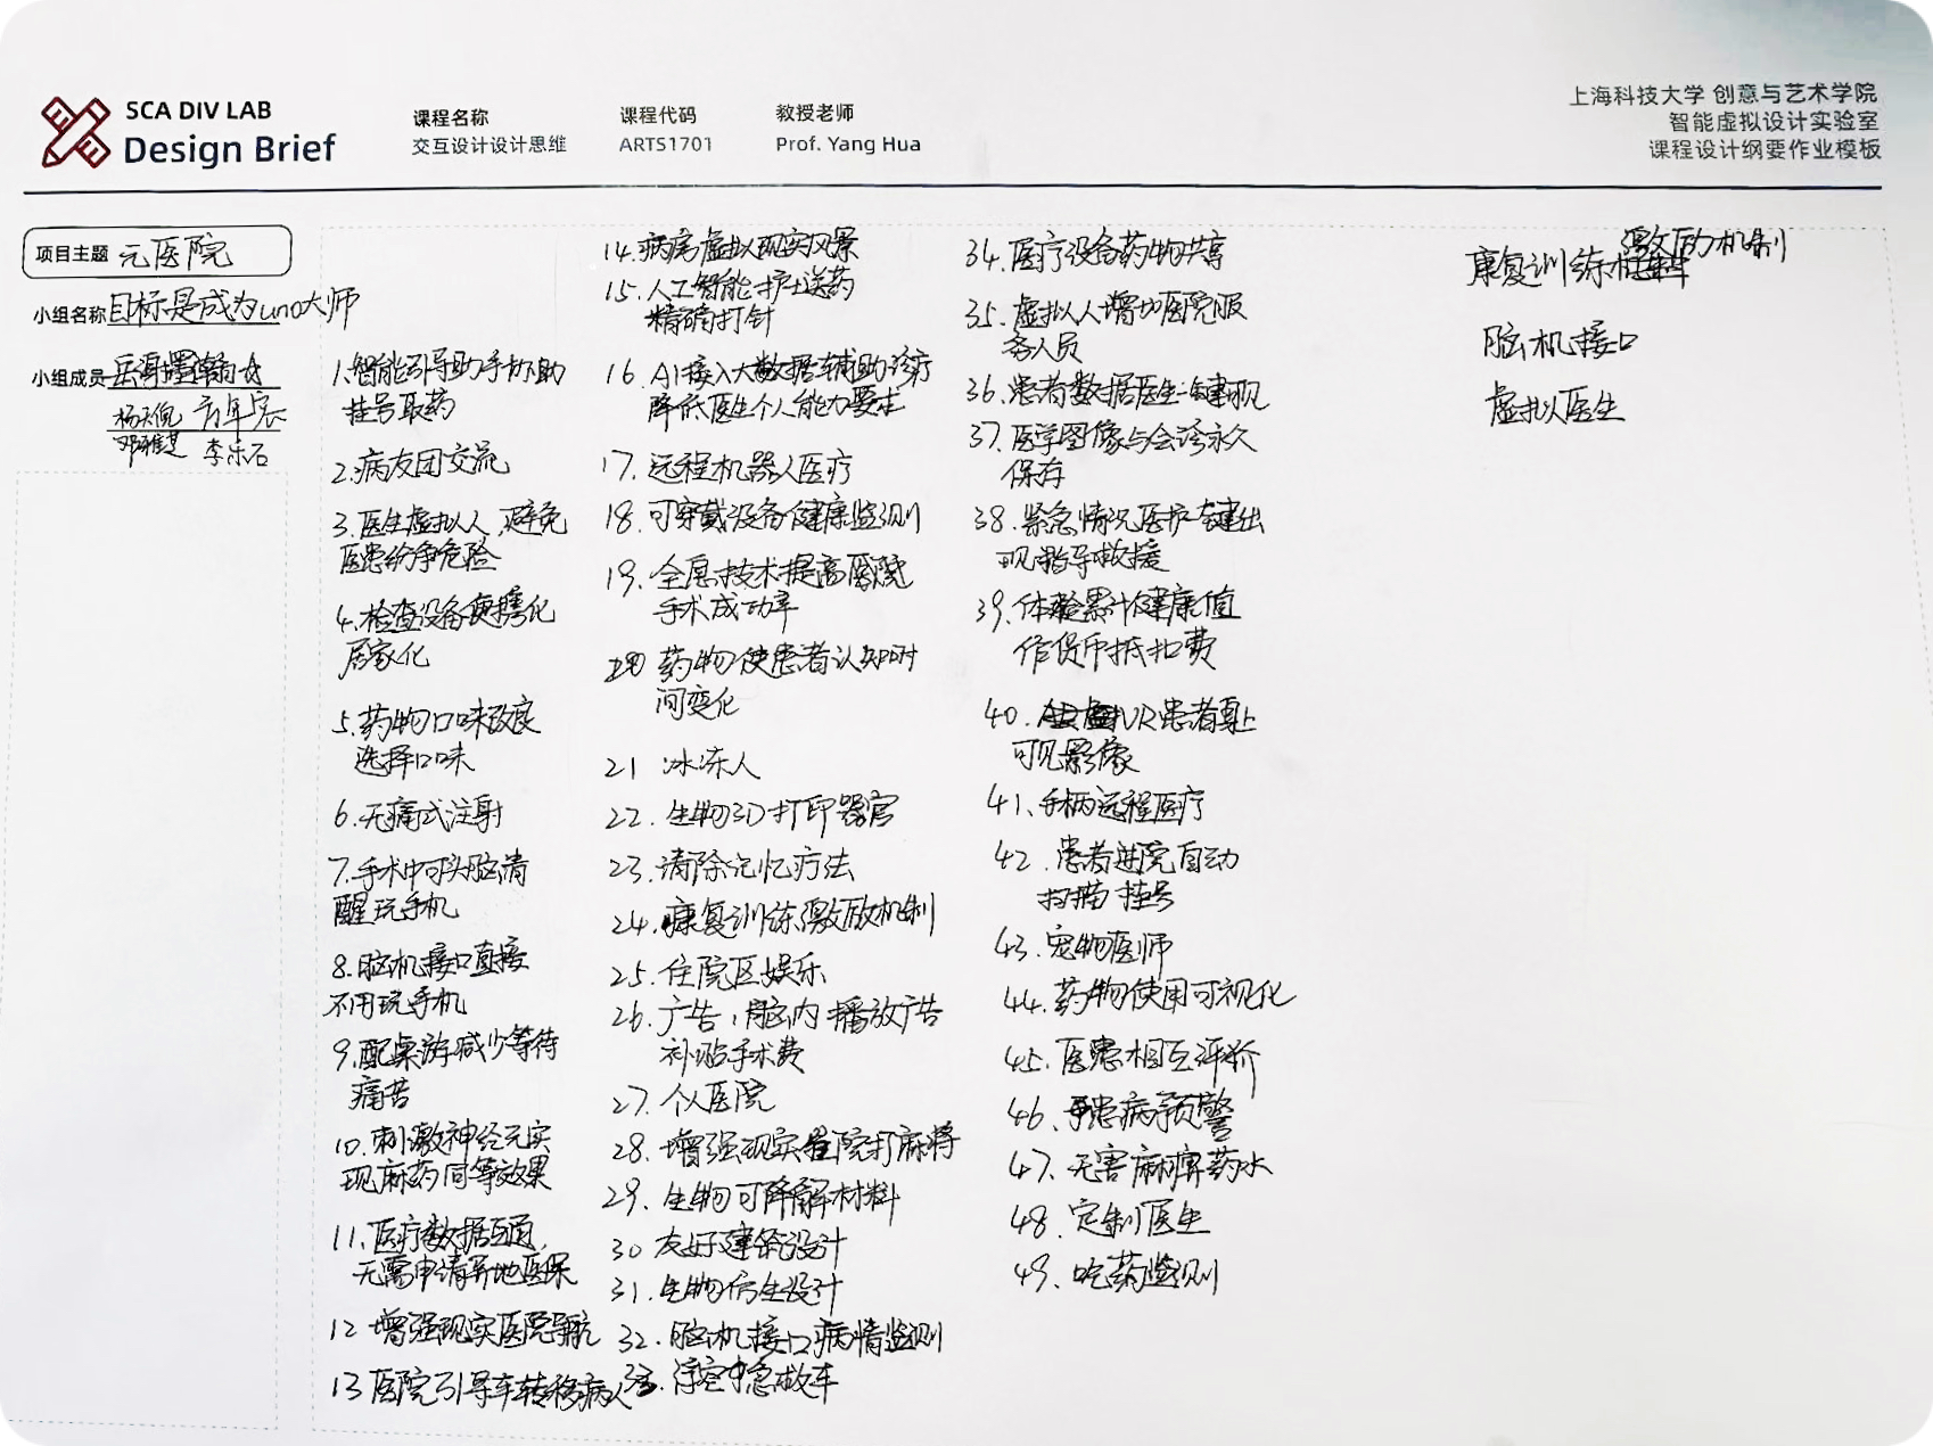 SCA DIV LAB
Design Brief
课程名称
交互设计设计思维
课程代码
ARTS1701
教授老师
Prof. Yang Hua
上海科技大学 创意与艺术学院
智能虚拟设计实验室
课程设计纲要作业模板
项目主题 元医院
小组名称 目标是成为uno大师
小组成员
李乐石
1.智能引导助手协助
挂号取药
2.病友团交流
3.医生虚拟人,避免
医患纷争危险
4.检查设备便携化
居家化
5.药物口味改良
选择口味
6.无痛式注射
7.手术中可头脑清
醒玩手机
8.脑机接口直接
不用玩手机
9.配桌游减少等待
痛苦
10.刺激神经元实
现麻药同等效果
11.医疗数据互通,
无需申请异地医保
12 增强现实医院导航
13 医院引导车转移病人
14.病房虚拟现实风景
15.人工智能护士送药
精确打针
16.AI接入大数据辅助诊疗
降低医生个人能力要求
17.远程机器人医疗
18.可穿戴设备健康监测
19.全息技术提高医院
手术成功率
20 药物使患者认知时
间变化
21 冰冻人
22.生物3D打印器官
23.清除记忆疗法
24.康复训练激励机制
25.住院区娱乐
26.广告,脑内播放广告
补贴手术费
27.个人医院
28.增强现实住院打麻将
29.生物可降解材料
30 友好建筑设计
31.生物仿生设计
32.脑机接口病情监测
33.浮空急救车
34.医疗设备药物共享
35.虚拟人增加医院服
务人员
36.患者数据医生一键可见
37.医学图像与会诊永久
保存
38.紧急情况医护一键出
现指导救援
39.体验累计健康值
作货币抵扣费
40. VR患者身上
可见影像
41.手柄远程医疗
42.患者进院自动
扫描挂号
43.宠物医师
44.药物使用可视化
45.医患相互评价
46.患病预警
47.无害麻痹药水
48.定制医生
49.吃药监测
康复训练激励机制
脑机接口
虚拟医生